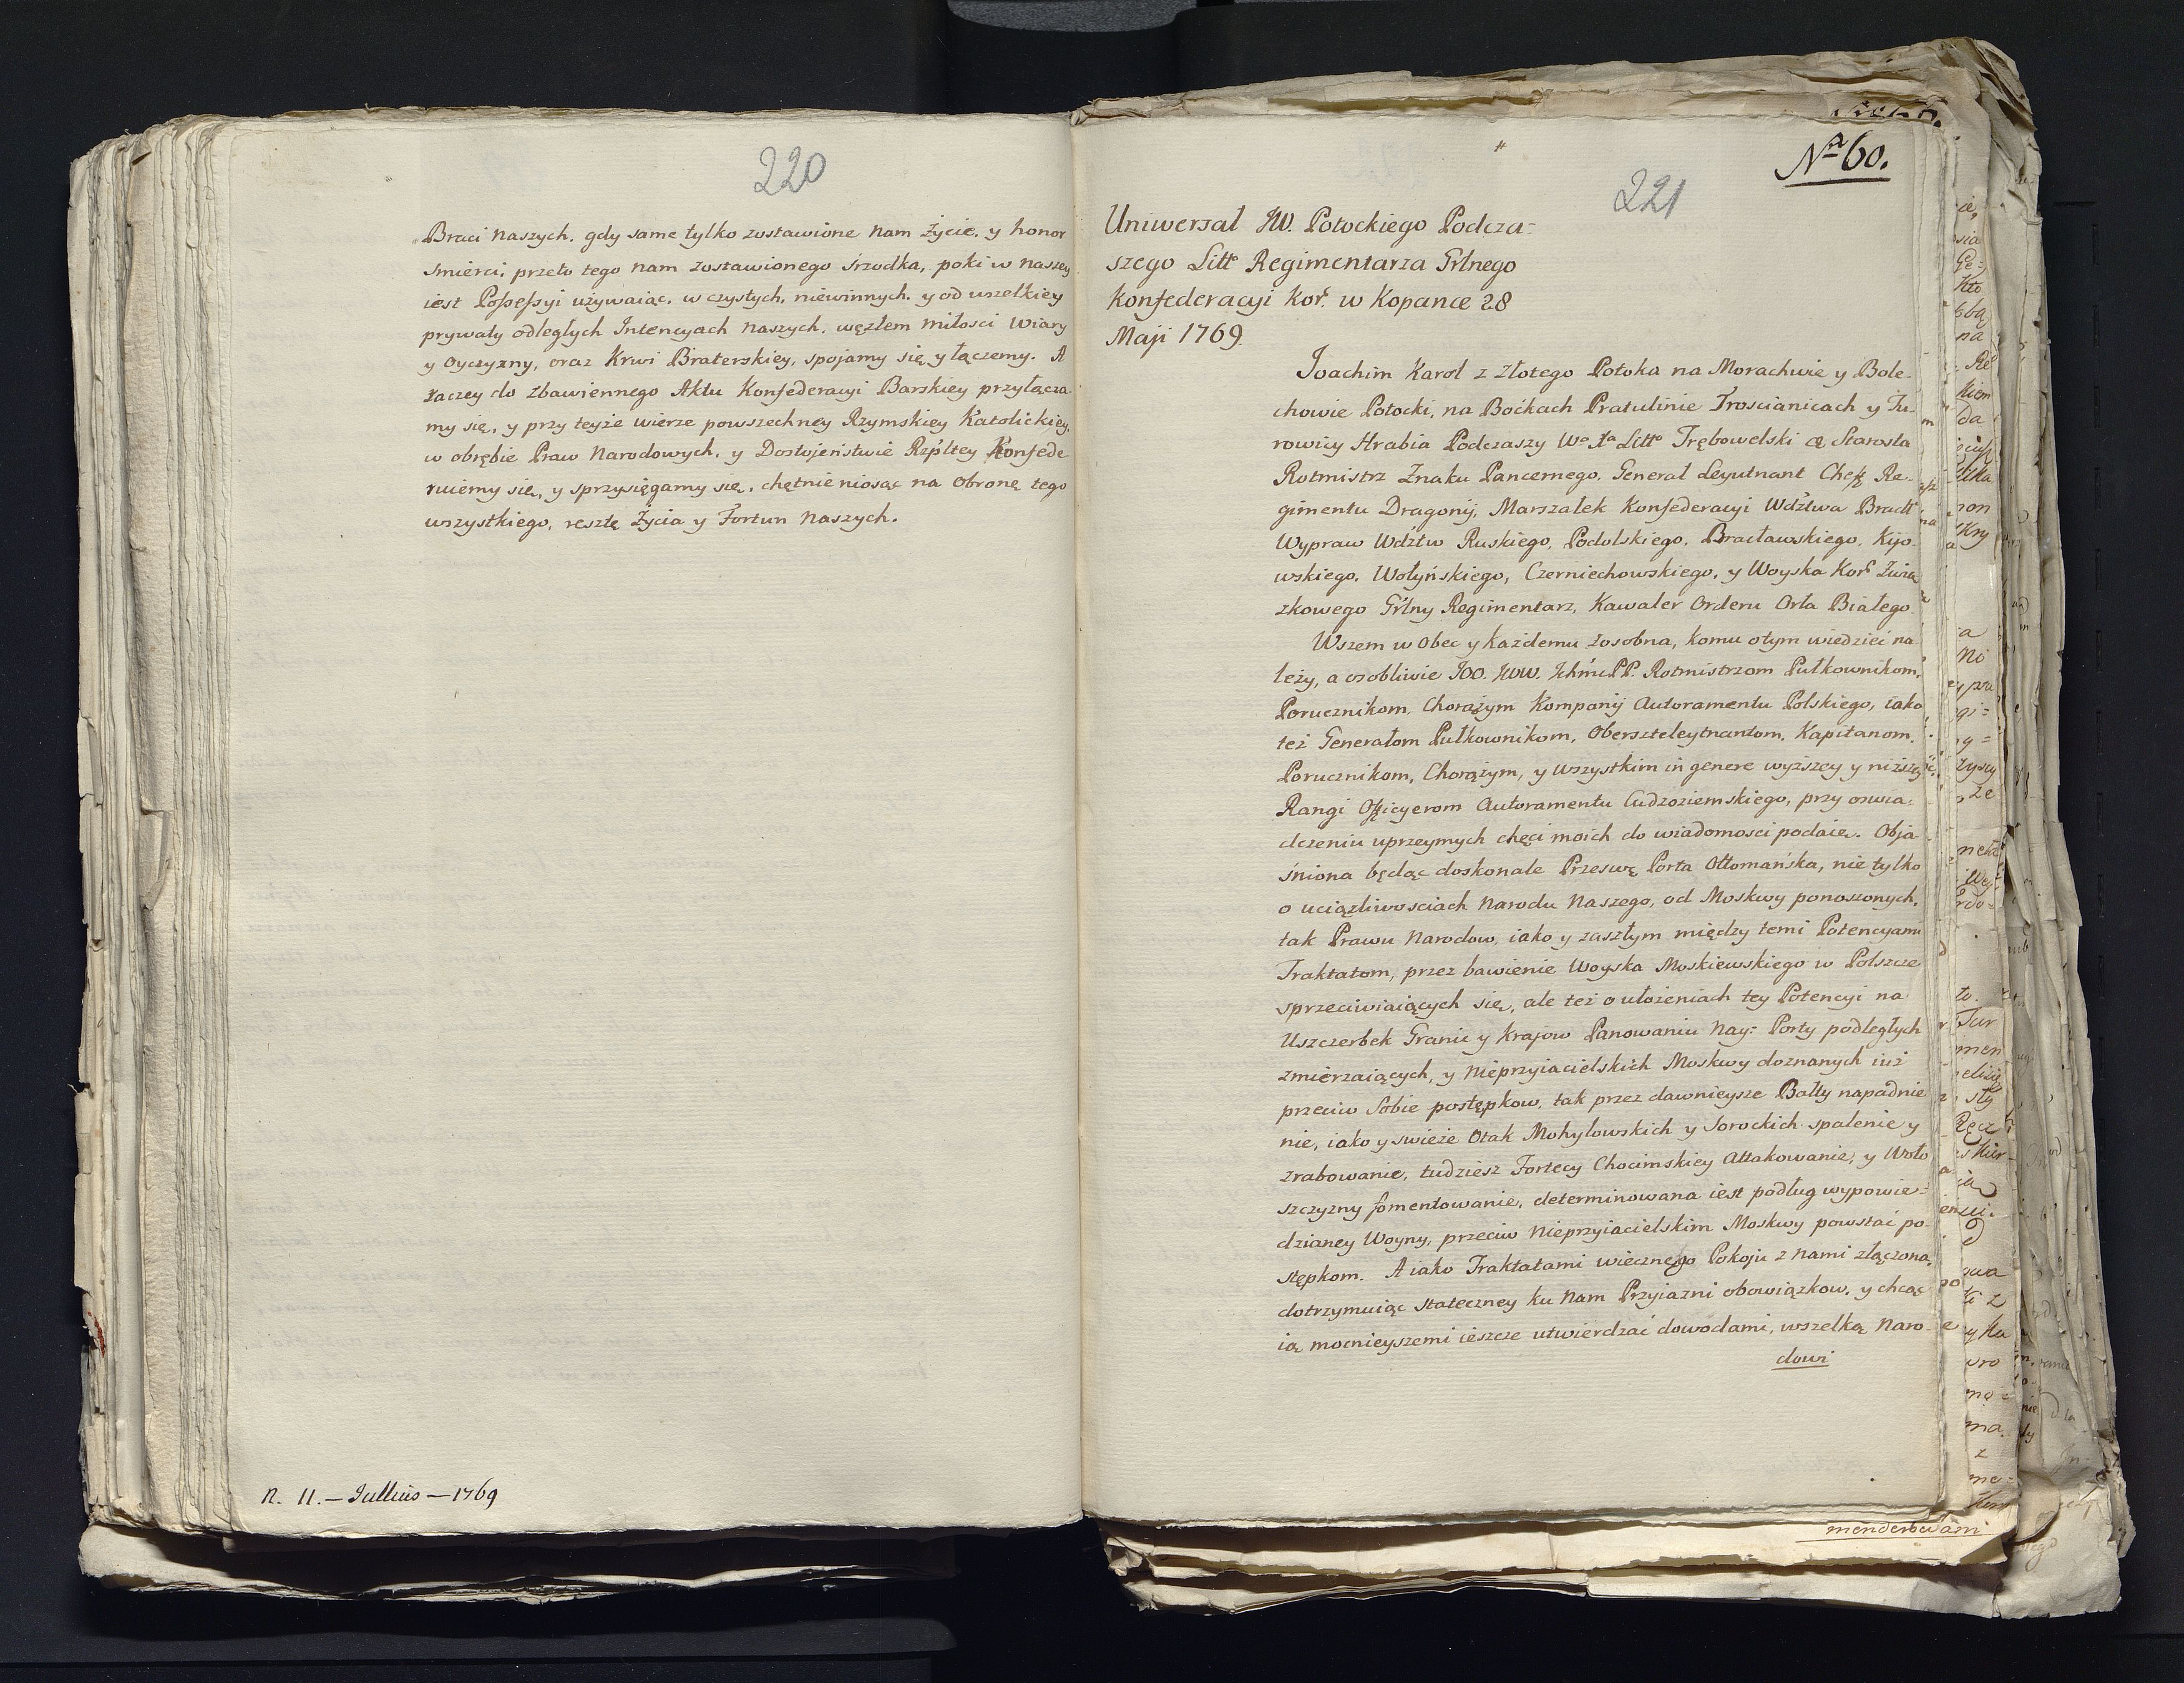 220
Braci naszych. gdy same tylko zostawione nam życie. y honor
smierci, przeto tego nam zostawionego srzodka, poki w naszey
iest Possessyi używaiąc, w czystych, niewinnych. y od wszelkiey
prywaty odległych Intencyach naszych, węzłem miłosci Wiary
y Oyczyzny, oraz Krwi Braterskiey, spojamy się, y łączemy. A
raczey do zbawiennego Aktu Konfederacyi Barskiey przyłącza-
my się, y przy teyże wierze powszechney Rzymskiey Katolickiey,
w obrębie Praw Narodowych, y Dostojeństwie Rzpltey Konfede
ruiemy się, y sprzysięgamy się, chętnie niosąc na obronę tego
wszystkiego, resztę Życia y Fortun Naszych.
N. 11. — Jullius — 1769
No 60.
221
Uniwersał JW. Potockiego Podcza-
szego Litto Regimentarza Grlnego
Konfederacyi Kor. w Kopance 28
Maji 1769.
Joachim Karol z Złotego Potoka na Morachwie y Bole-
chowie Potocki, na Boćkach Pratulinie Troscianicach y Tu-
rowicy Hrabia Podczaszy Wo Xa Litto Trębowelski & Starosta
Rotmistrz Znaku Pancernego, Generał Leyutnant Cheff Re-
gimentu Dragonij, Marszałek Konfederacyi Wdźtwa Bracłł
Wypraw Wdźtw Ruskiego, Podolskiego, Bracławskiego, Kijo-
wskiego, Wołyńskiego, Czerniechowskiego, y Woyska Kor Zwią
zkowego Grlny Regimentarz, Kawaler Orderu Orła Białego.
Wszem w obec y każdemu zosobna, komu otym wiedzieć na
leży, a osobliwie JOO. JWW. Ichmć PP. Rotmistrzom Pułkownikom,
Porucznikom, Chorążym Kompanij Autoramentu Polskiego, iako
też Generałom Pułkownikom, Oberszteleytnantom, Kapitanom,
Porucznikom, Chorążym, y wszystkim in genere wyższey y niższey
Rangi Officyerom Autoramentu Cudzoziemskiego, przy oswia-
dczeniu uprzeymych chęci moich do wiadomosci podaię. Obja
śniona będąc doskonale Przeswę Porta Ottomańska, nie tylko
o uciążliwosciach Narodu Naszego, od Moskwy ponoszonych,
tak Prawu Narodow, iako y zaszłym między temi Potencyami
Traktatom, przez bawienie Woyska Moskiewskiego w Polszcze
sprzeciwiaiących się, ale też o ułożeniach tey Potencyi na
Uszczerbek Granic y Krajow Panowaniu Nay: Porty podległych
zmierzaiących, y Nieprzyiacielskich Moskwy doznanych iuż
przeciw Sobie postępkow, tak przez dawnieysze Bałty napadnie
nie, iako y swieże Otak Mohylowskich y Sorockich spalenie y
zrabowanie, tudziesz Fortecy Chocimskiey Attakowanie, y Woło
szczyzny fomentowanie, determinowana iest podług wypowie-
dzianey Woyny, przeciw Nieprzyiacielskim Moskwy powstać po-
stępkom. A iako Traktatami wiecznego Pokoju z nami złączona,
dotrzymuiąc stateczney ku Nam Przyiazni obowiązkow, y chcąc
ią mocnieyszemi ieszcze utwierdzać dowodami, wszelką Naro-
dowi